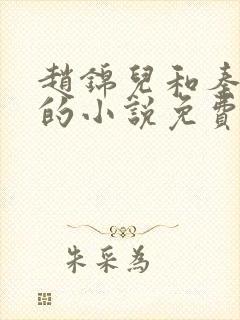 趙錦兒和秦
的小說免費
朱采為